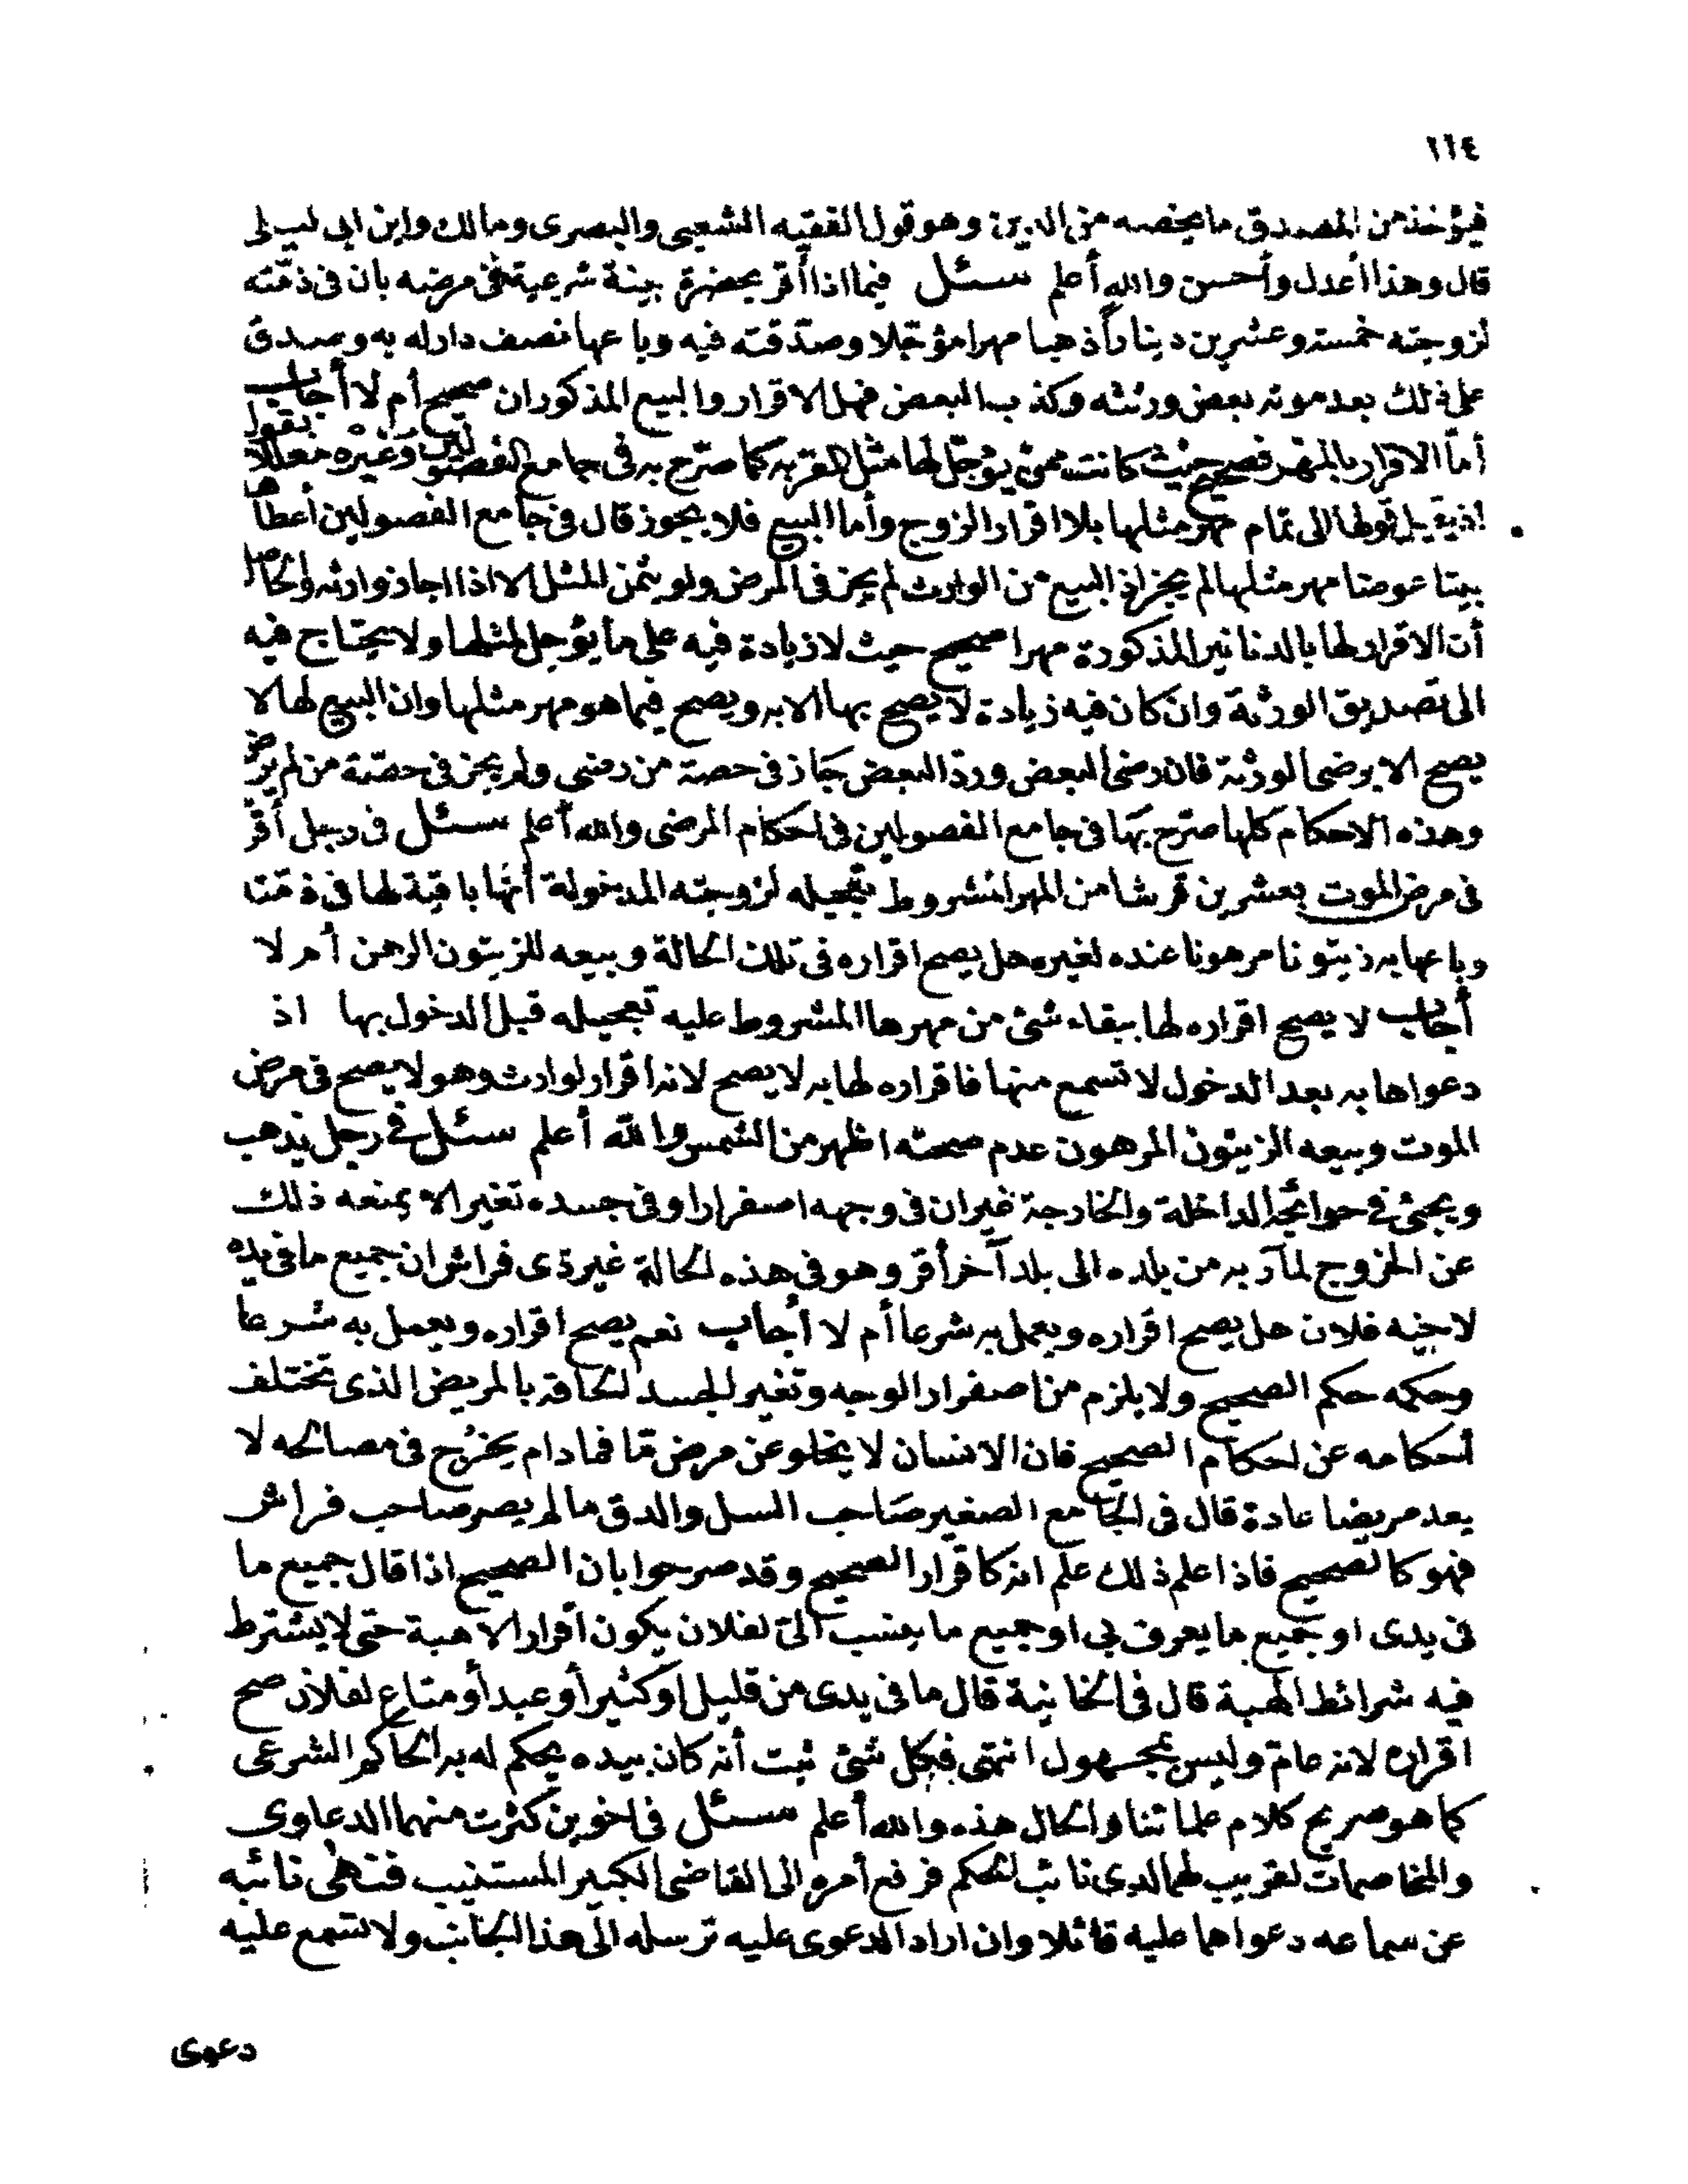 ١١٤
فيؤخذ من المصدق ما يخصه من الدين وهو قول الفقيه الشعبي والبصرى ومالك وابن ابى ليلى
قال وهذا أعدل وأحسن والله أعلم سئل فيما اذا أقر بحضرة بينة شرعية فى مرضه بان فى ذمّته
لزوجته خمسة وعشرين دينارًا ذهبا مهرا مؤجّلا وصدّقته فيه وباعها نصف دار له به وصدق
على ذلك بعد موته بعض ورثته وكذب البعض فهل الاقرار والبيع المذكوران صحيح أم لا أجاب
أمّا الاقرار بالمهر فصحيح حيث كانت ممن يؤجّل لها مثل المقر به كما صرّح به فى جامع الفصولين وغيره معللا بقوله
اذ يقبل قولها الى تمام مهر مثلها بلا اقرار الزوج وأما البيع فلا يجوز قال فى جامع الفصولين أعطاها
بيتا عوضا مهر مثلها لم يجز اذ البيع من الوارث لم يجز فى المرض ولو بثمن المثل الا اذا اجاز وارثه والحاصل
أن الاقرار لها بالدنانير المذكورة مهرا صحيح حيث لا زيادة فيه على ما يؤجل لمثلها ولا يحتاج فيه
الى تصديق الورثة وان كان فيه زيادة لا يصح بها الا به ويصح فيما هو مهر مثلها وان البيع لها لا
يصح الا برضى الورثة فان رضى البعض وردّ البعض جاز فى حصة من رضى ولم يجز فى حصّة من لم يرض
وهذه الاحكام كلها صرّح بها فى جامع الفصولين فى احكام المرضى والله أعلم سئل فى رجل أقرّ
فى مرض الموت بعشرين قرشا من المهر المشروط تعجيله لزوجته المدخولة أنها باقية لها فى ذمّته
وباعها به زيتونا مرهونا عنده لغيره هل يصح اقراره فى تلك الحالة وبيعه للزيتون الرهن أم لا
أجاب لا يصح اقراره لها ببقاء شئ من مهرها المشروط عليه تعجيله قبل الدخول بها اذ
دعواها به بعد الدخول لا تسمع منها فاقراره لها به لا يصح لانه اقرار لوارث وهو لا يصح فى مرض
الموت وبيعه الزيتون المرهون عدم صحته اظهر من الشمس والله أعلم سئل فى رجل يذهب
ويجئ فى حوائجه الداخلة والخارجة غير ان فى وجهه اصفرارا وفى جسده تغير الا يمنعه ذلك
عن الخروج لمآربه من بلده الى بلد آخر أقر وهو فى هذه الحالة غير ذى فراش ان جميع ما فى يده
لاخيه فلان هل يصح اقراره ويعمل به شرعا أم لا أجاب نعم يصح اقراره ويعمل به شرعا
وحكمه حكم الصحيح ولا يلزم من اصفرار الوجه وتغير الجسد لحاقه بالمريض الذى تختلف
أحكامه عن احكام الصحيح فان الانسان لا يخلو عن مرض مّا فما دام يخرج فى مصالحه لا
يعد مريضا عادة قال فى الجامع الصغير صاحب السل والدق ما لم يصر صاحب فراش
فهو كالصحيح فاذا علم ذلك علم انه كاقرار الصحيح وقد صرحوا بان الصحيح اذا قال جميع ما
فى يدى او جميع ما يعرف بى او جميع ما ينسب الىّ لفلان يكون أقرار الا هبة حتى لا يشترط
فيه شرائط الهبة قال فى الخانية قال ما فى يدى من قليل او كثير أو عبد أو متاع لفلان صح
اقراره لانه عامّ وليس بمجهول انتهى فبكل شئ ثبت أنه كان بيده يحكم له به الحاكم الشرعى
كما هو صريح كلام علمائنا والحال هذه والله أعلم سئل فى اخوين كثرت منهما الدعاوى
والمخاصمات لقريب لهما لدى نائب الحكم فرفع أمره الى القاضى الكبير المستنيب فنهى نائبه
عن سماعه دعواهما عليه قائلا وان اراد الدعوى عليه ترسله الى هذا الجانب ولا تسمع عليه
دعوى